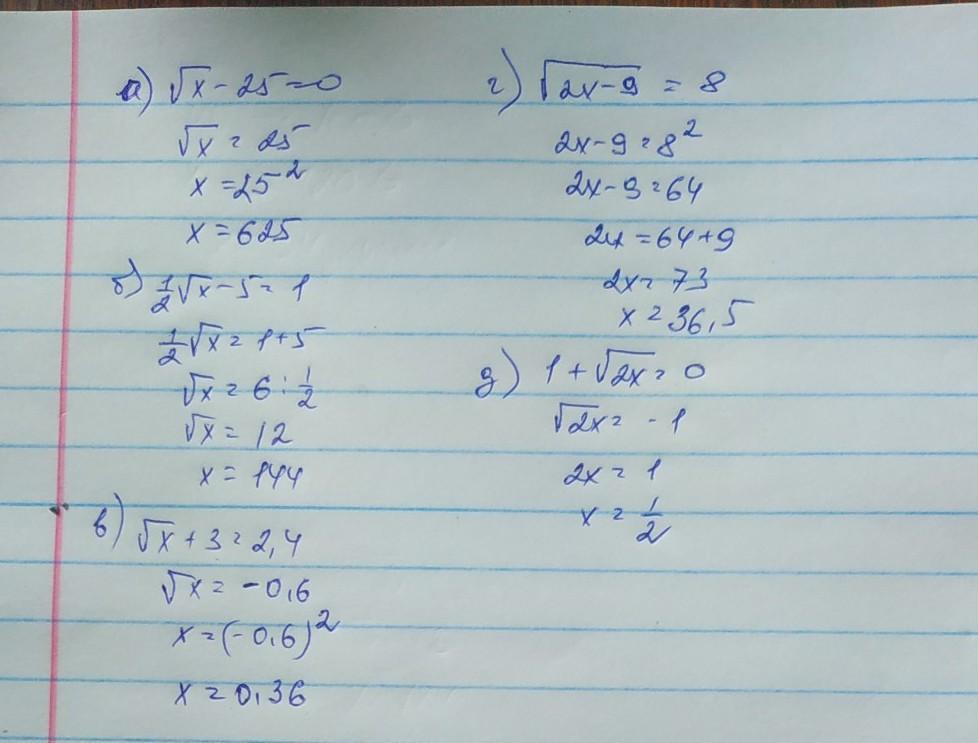 а) √x - 25 = 0
√x = 25
x = 25²
x = 625
б) 1/2 √x - 5 = 1
1/2 √x = 1 + 5
√x = 6 : 1/2
√x = 12
x = 144
в) √x + 3 = 2,4
√x = -0,6
x = (-0,6)²
x = 0,36
г) √(2x-9) = 8
2x - 9 = 8²
2x - 9 = 64
2x = 64 + 9
2x = 73
x = 36,5
д) 1 + √(2x) = 0
√(2x) = -1
2x = 1
x = 1/2